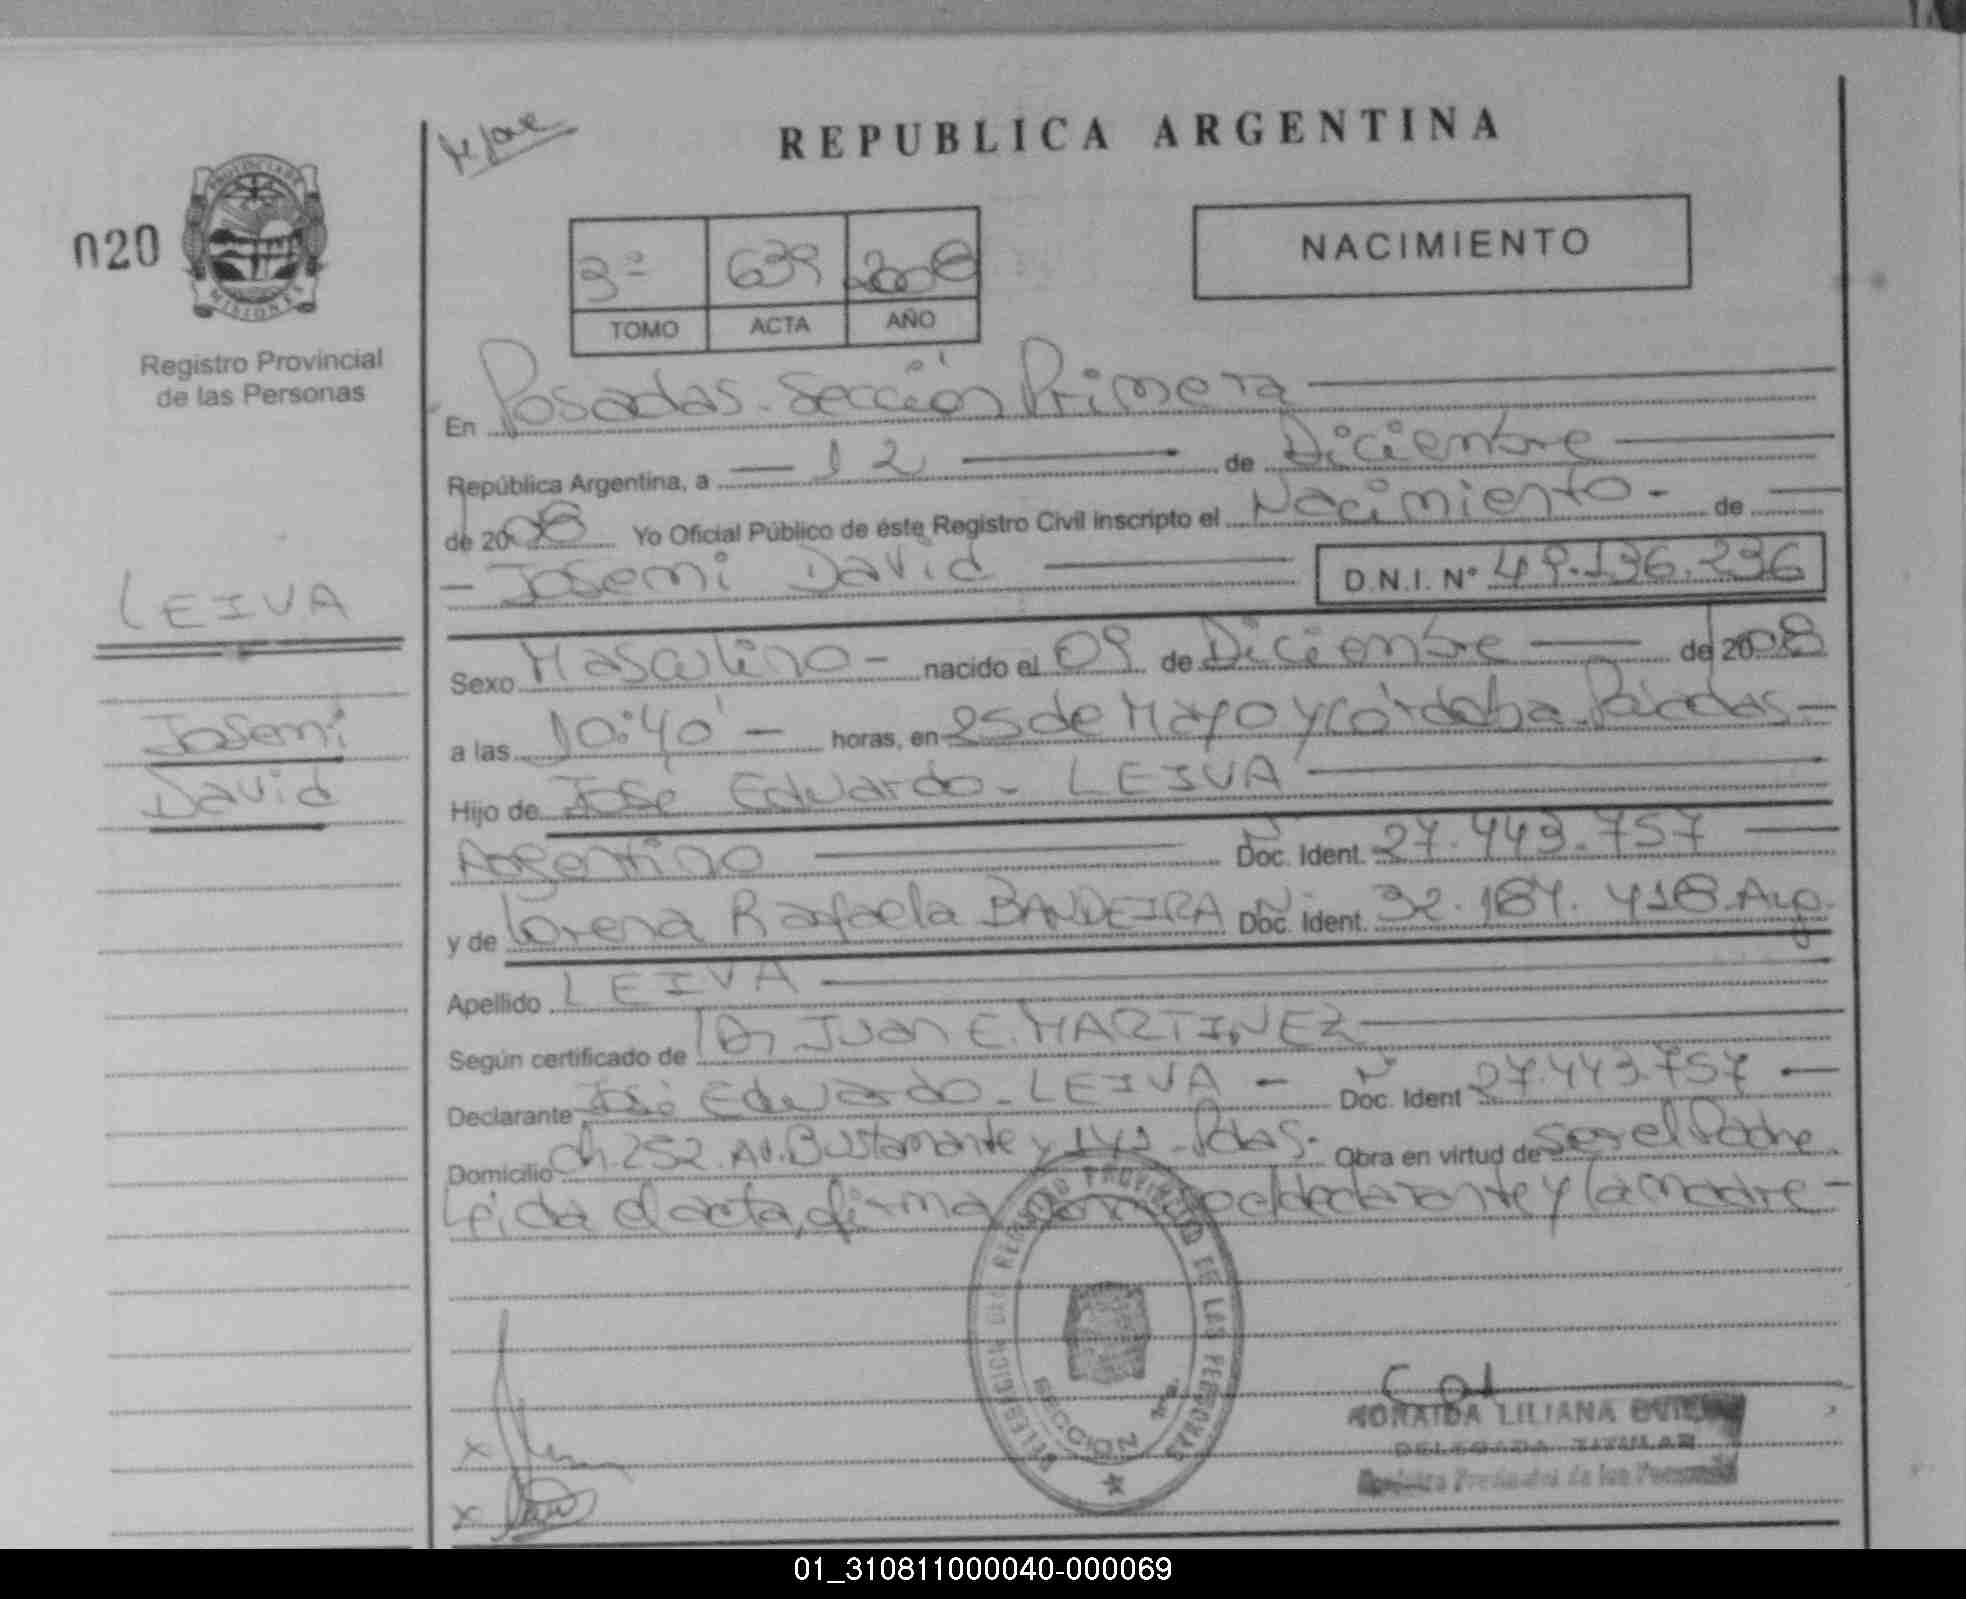 REPUBLICA ARGENTINA
020
PROVINCIA DE
MISIONES
Registro Provincial
de las Personas
NACIMIENTO
3º 639 2008
TOMO ACTA AÑO
En Posadas. Sección Primera
República Argentina, a 12 de Diciembre
de 2008 Yo Oficial Público de éste Registro Civil inscripto el Nacimiento - de
Josemi David D.N.I. Nº 49.136.236
LEIVA
Josemi
David
Sexo Masculino - nacido el 09 de Diciembre de 2008
a las 10:40' - horas, en 25 de Mayo y Córdoba. Posadas -
Hijo de José Eduardo - LEIVA
Argentino Doc. Ident. 27.443.757
y de Lorena Rafaela BANDEIRA Doc. Ident. 32.187.418 Arg.
Apellido LEIVA
Según certificado de Dr Juan E. MARTINEZ
Declarante José Eduardo - LEIVA - Doc. Ident 27.443.757 -
Domicilio Ch. 252. Av. Bustamante y 141 - Pdas. Obra en virtud de ser el Padre
Leída el acta, firma conmigo el declarante y la madre -
DELEGACION DEL REGISTRO PROVINCIAL DE LAS PERSONAS
SECCION 1ra.
LILIANA
DELEGADA TITULAR
Registro Provincial de las Personas
x
x
01_310811000040-000069